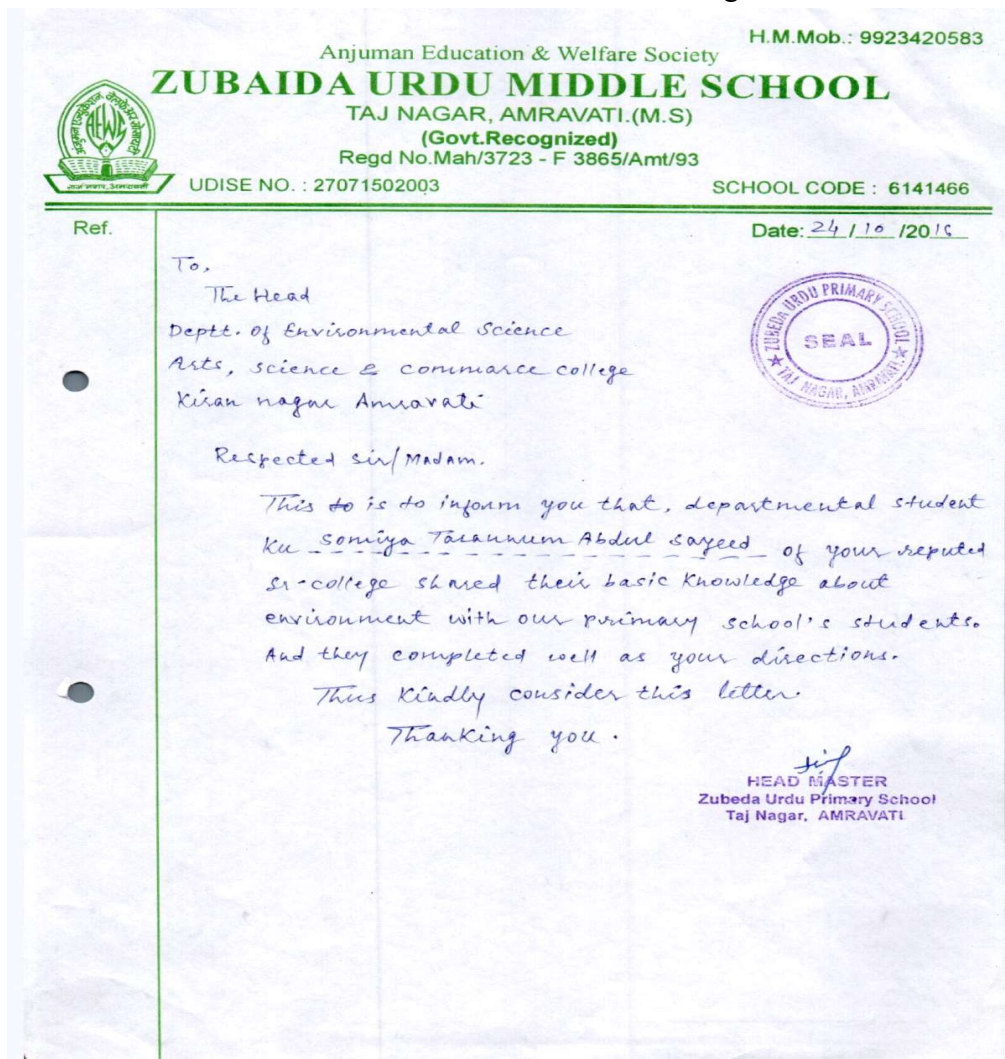 H.M.Mob.: 9923420583
Anjuman Education & Welfare Society
ZUBAIDA URDU MIDDLE SCHOOL
TAJ NAGAR, AMRAVATI.(M.S)
(Govt.Recognized)
Regd No.Mah/3723 - F 3865/Amt/93
AEWS
UDISE NO. : 27071502003
SCHOOL CODE : 6141466
Ref.
Date: 24 / 10 /20
To,
The Head
Deptt. of Environmental Science
Arts, science & commarce college
Kiran nagar Amravati
ZUBEDA URDU PRIMARY SCHOOL
SEAL
TAJ NAGAR, AMRAVATI
Respected sir/Madam.
This to is to inform you that, departmental student
Ku Somiya Tarannum Abdul Sayeed of your reputed
Sr-college shared their basic Knowledge about
environment with our primary school's students.
And they completed well as your directions.
Thus Kindly consider this letter.
Thanking you.
HEAD MASTER
Zubeda Urdu Primary School
Taj Nagar, AMRAVATI.